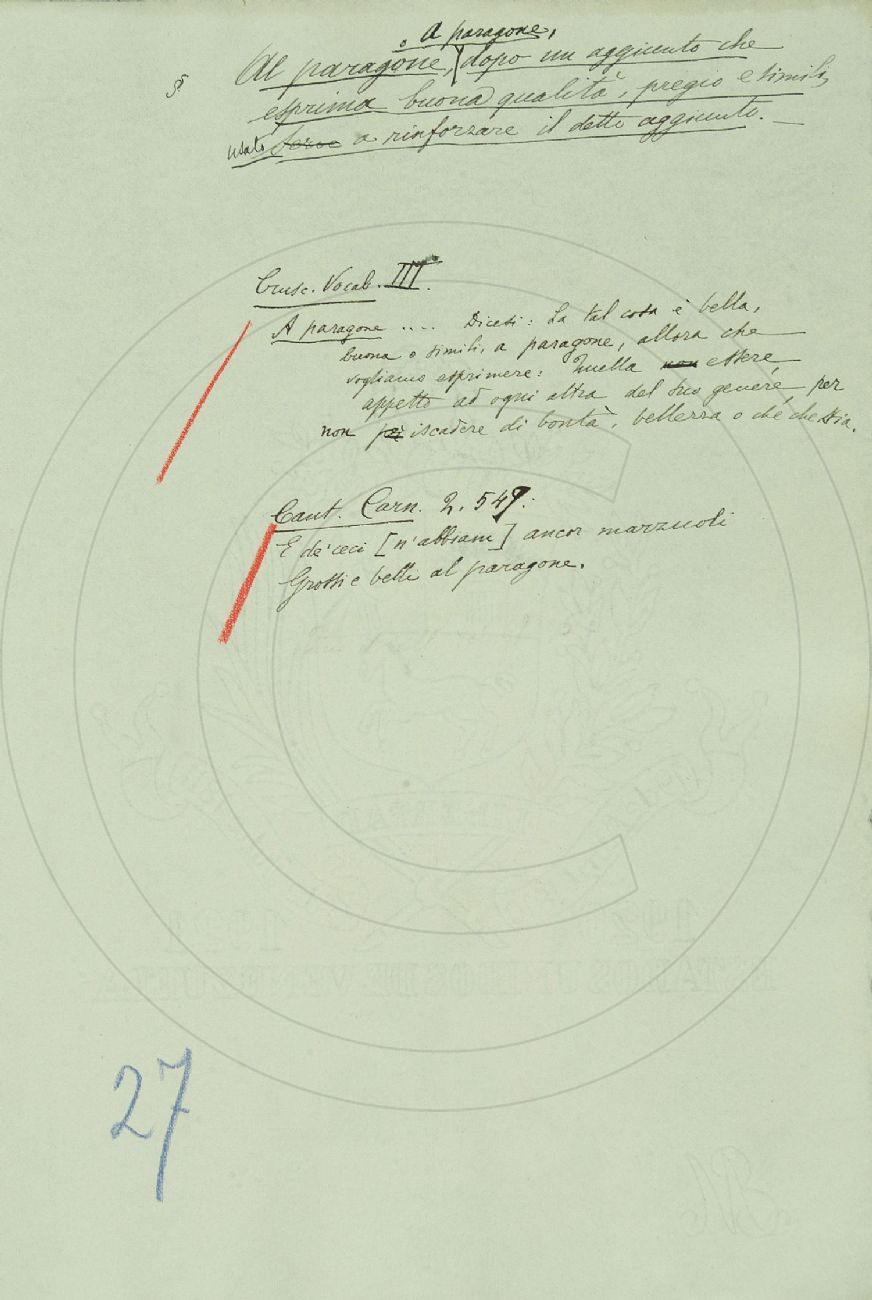 o A paragone,
§ Al paragone, dopo un aggiunto che
esprima buona qualità, pregio e simili,
usato Serve a rinforzare il detto aggiunto. —
Crusc. Vocab. III.
A paragone .... Dicesi: La tal cosa è bella,
buona o simili, a paragone, allora che
vogliamo esprimere: Quella non essere,
appetto ad ogni altra del suo genere, per
non iscadere di bontà, bellezza o che che sia.
Cant. Carn. 2. 547:
E de' ceci [n'abbiam] ancor marzuoli
Grossi e belli al paragone.
27